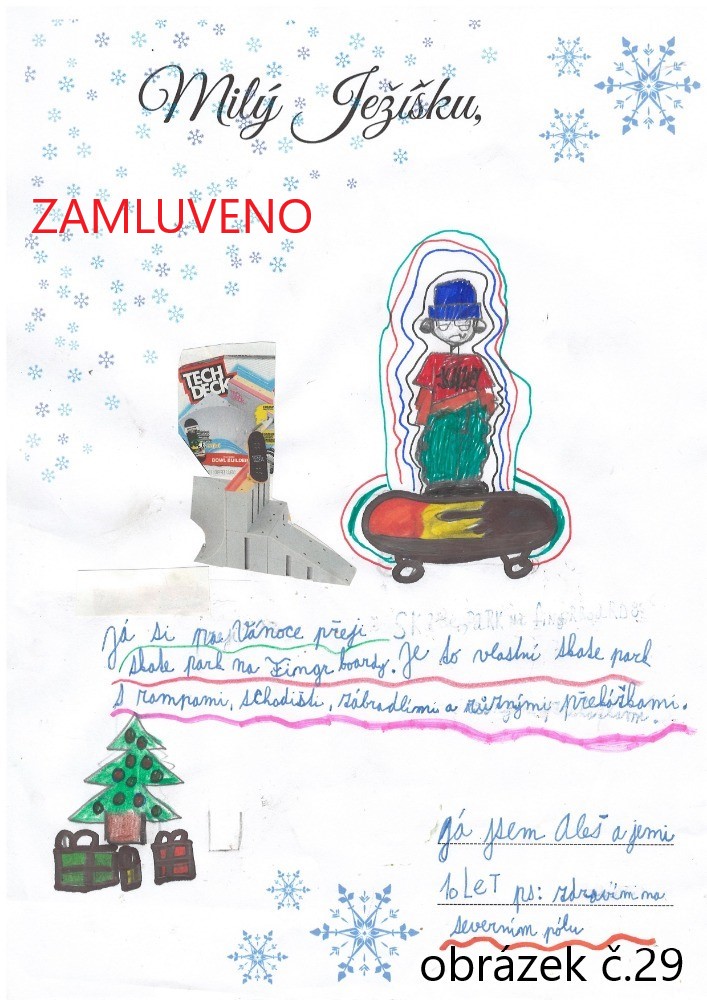 Milý Ježíšku,
ZAMLUVENO
TECH
DECK
BOWL BUILDER
Já si Vánoce přeji
skate park na Fingrboardy. Je to vlastní skate park
s rampami, schodišti, zábradlími a různými překážkami.
Já jsem Aleš a jemi
10 LET ps: zdravím na
severním pólu
obrázek č.29